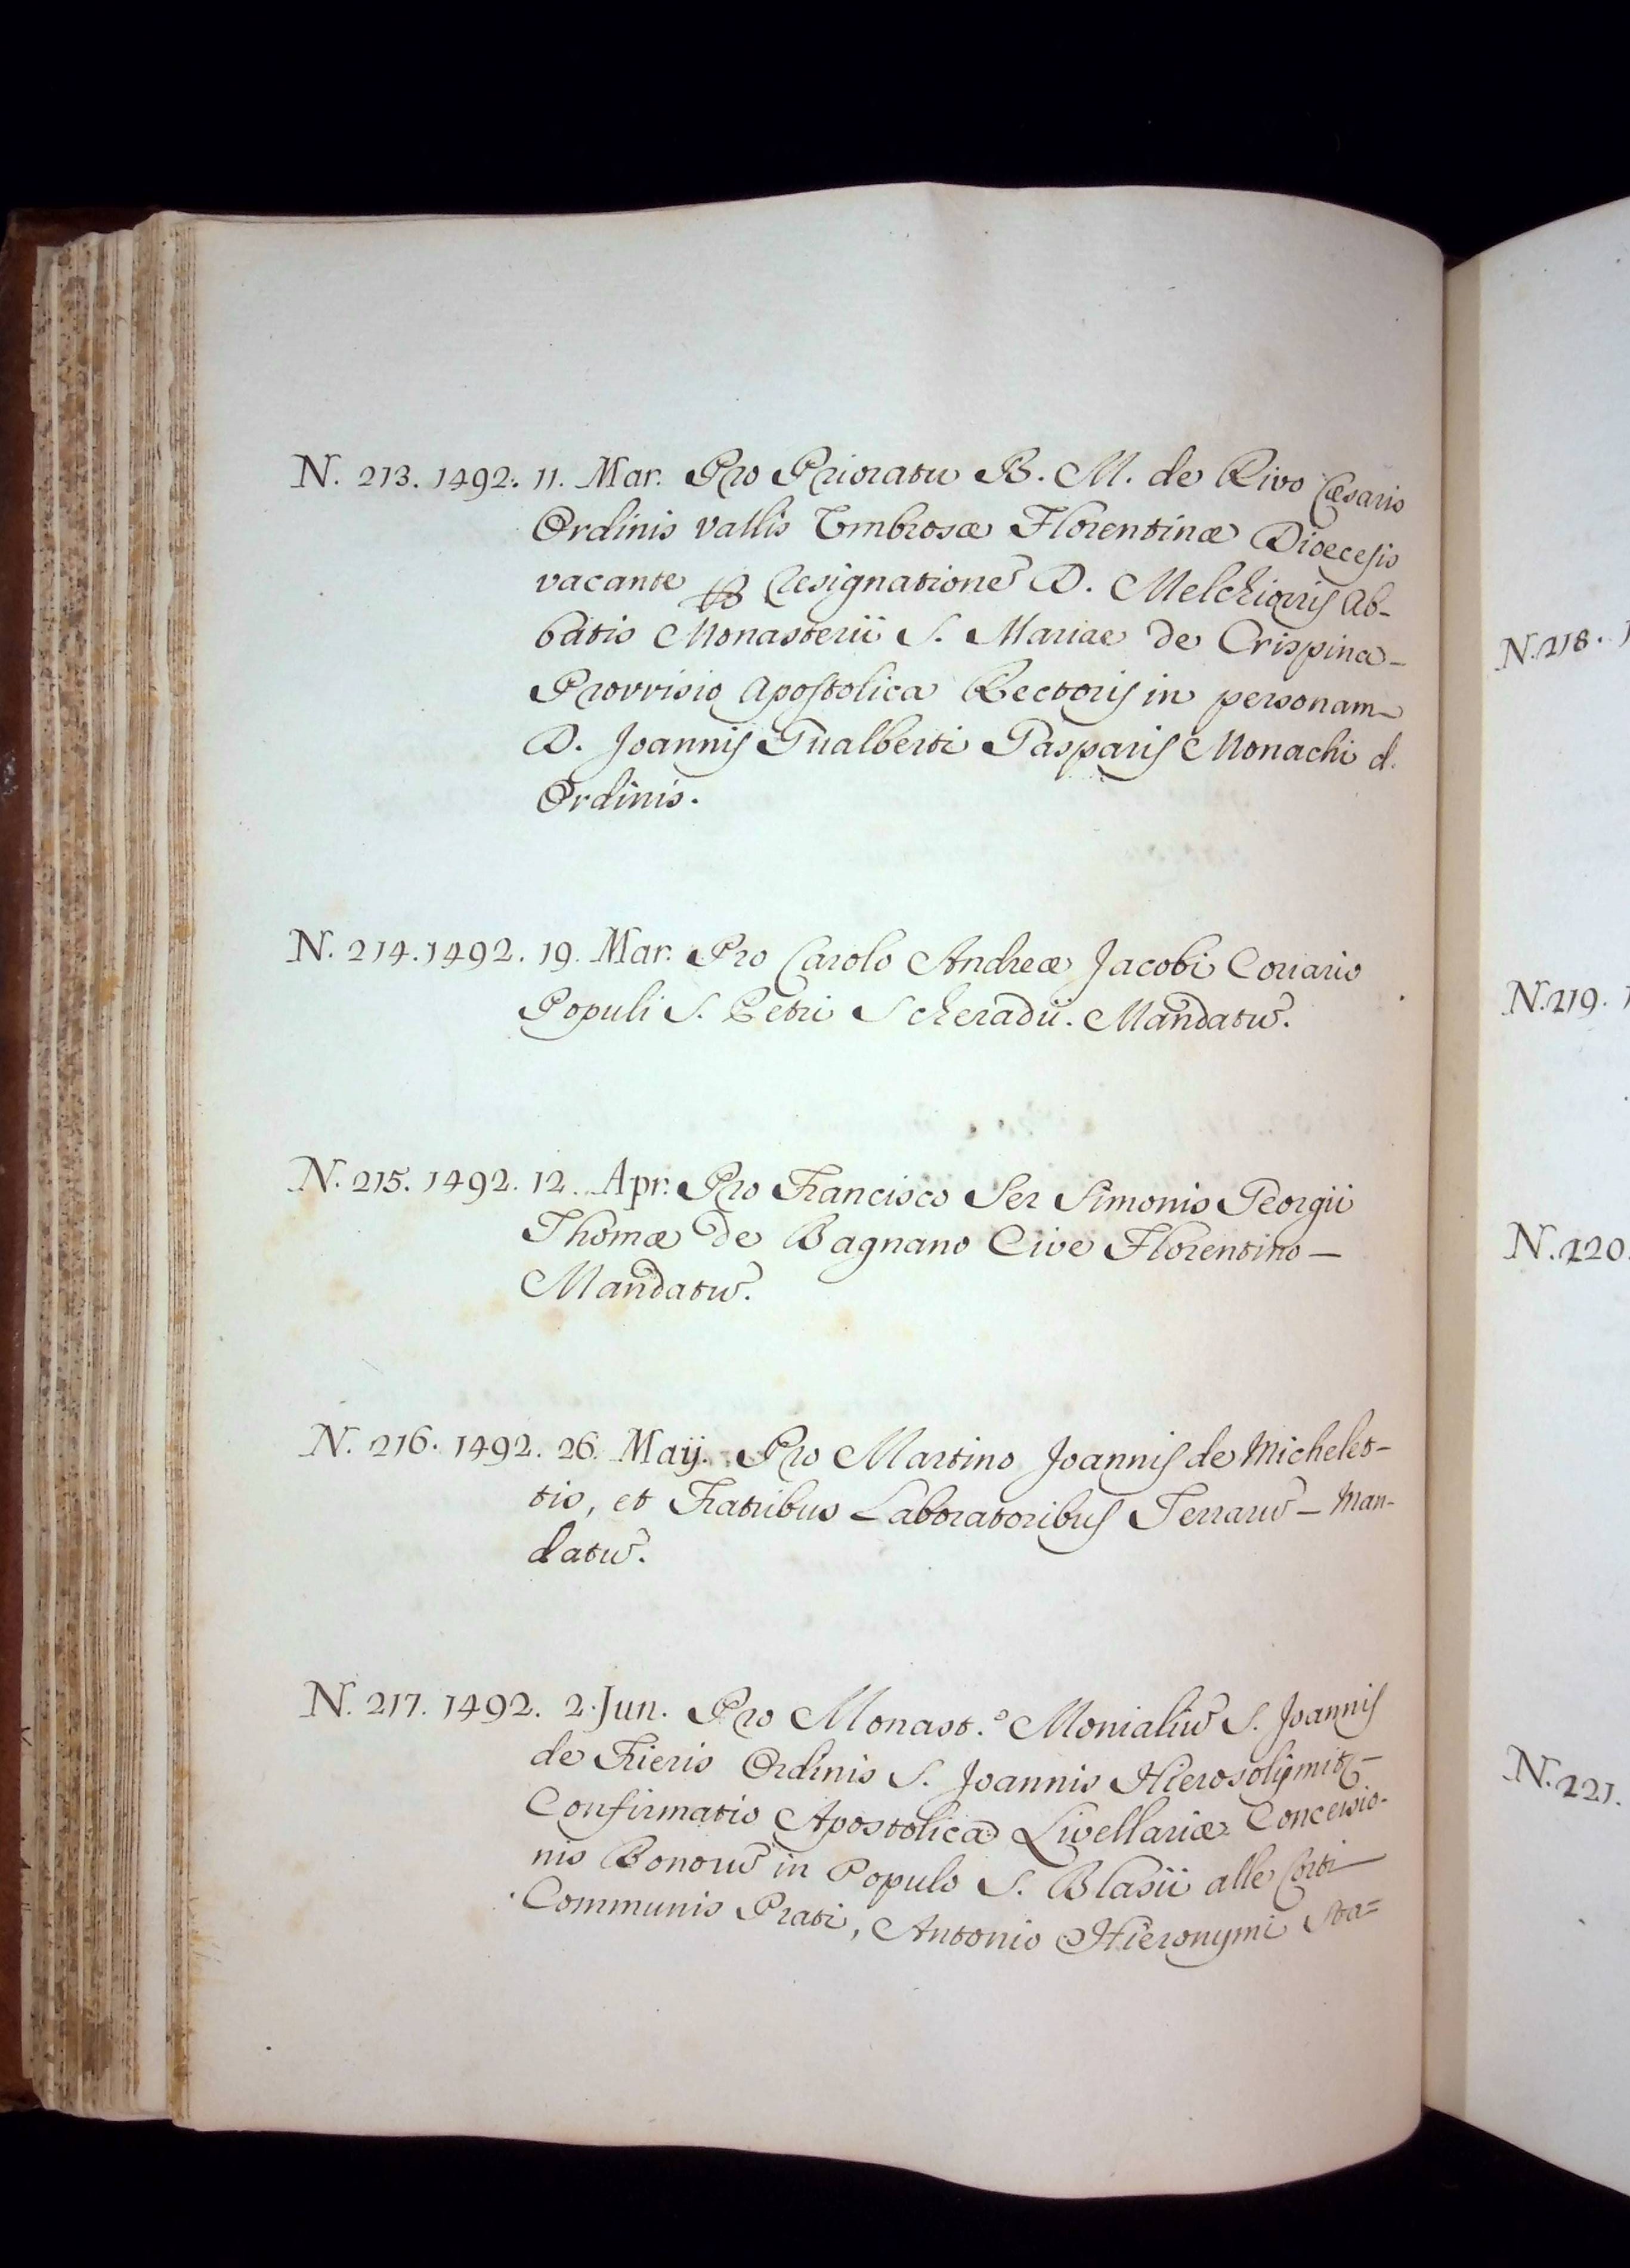 N. 213. 1492. 11. Mar. Pro Prioratu B. M. de Rivo Cæsaris
Ordinis vallis Umbrosæ Florentinæ Dioecesis
vacante Resignatione D. Melchioris Ab-
batis Monasterii S. Mariae de Crispina_
Provvisio Apostolica Rectoris in personam_
D. Joannis Gualberti Gasparis Monachi d.
Ordinis.
N. 214. 1492. 19. Mar. Pro Carolo Andreæ Jacobi Coriario
Populi S. Petri Scheradii. Mandatū.
N. 215. 1492. 12. Apr. Pro Francisco Ser Simonis Georgii
Thomæ de Bagnano Cive Florentino _
Mandatū.
N. 216. 1492. 26. Maij. Pro Martino Joannis de Michelet-
tis, et Fratribus Laboratoribus Terrarū _ Man-
datū.
N. 217. 1492. 2. Jun. Pro Monast.º Monialiū S. Joannis
de Frieris Ordinis S. Joannis Hierosolijmit _
Confirmatio Apostolica Livellariæ Concessio-
nis Bonorū in Populo S. Blasii alle Corti
Communis Prati, Antonio Hieronymi Sta=
N. 218. 1
N. 219. 1
N. 220.
N. 221.